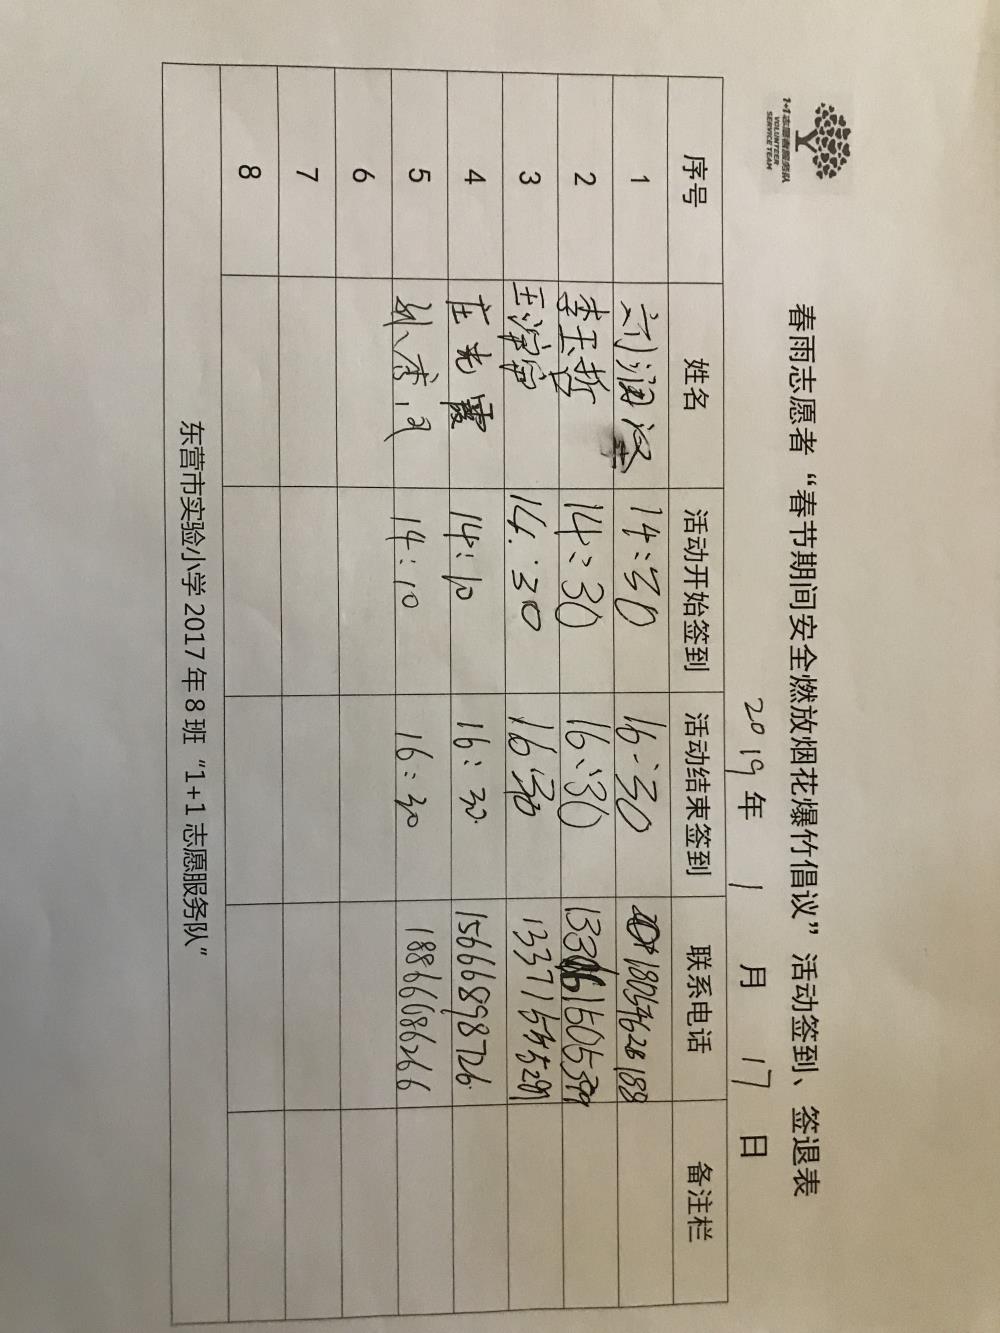 1+1志愿者服务队
VOLUNTEER
SERVICE TEAM
春雨志愿者“春节期间安全燃放烟花爆竹倡议”活动签到、签退表
2019年 1 月 17 日
序号 姓名 活动开始签到 活动结束签到 联系电话 备注栏
1 刘润汶 14:30 16:30 18054628188
2 李玉哲 14:30 16:30
3 王渖宵 14:30 16:30
4 庄光霞 14:10 16:30 15666898726
5 14:10 16:30 18866086266
6
7
8
东营市实验小学 2017 年 8 班“1+1 志愿服务队”